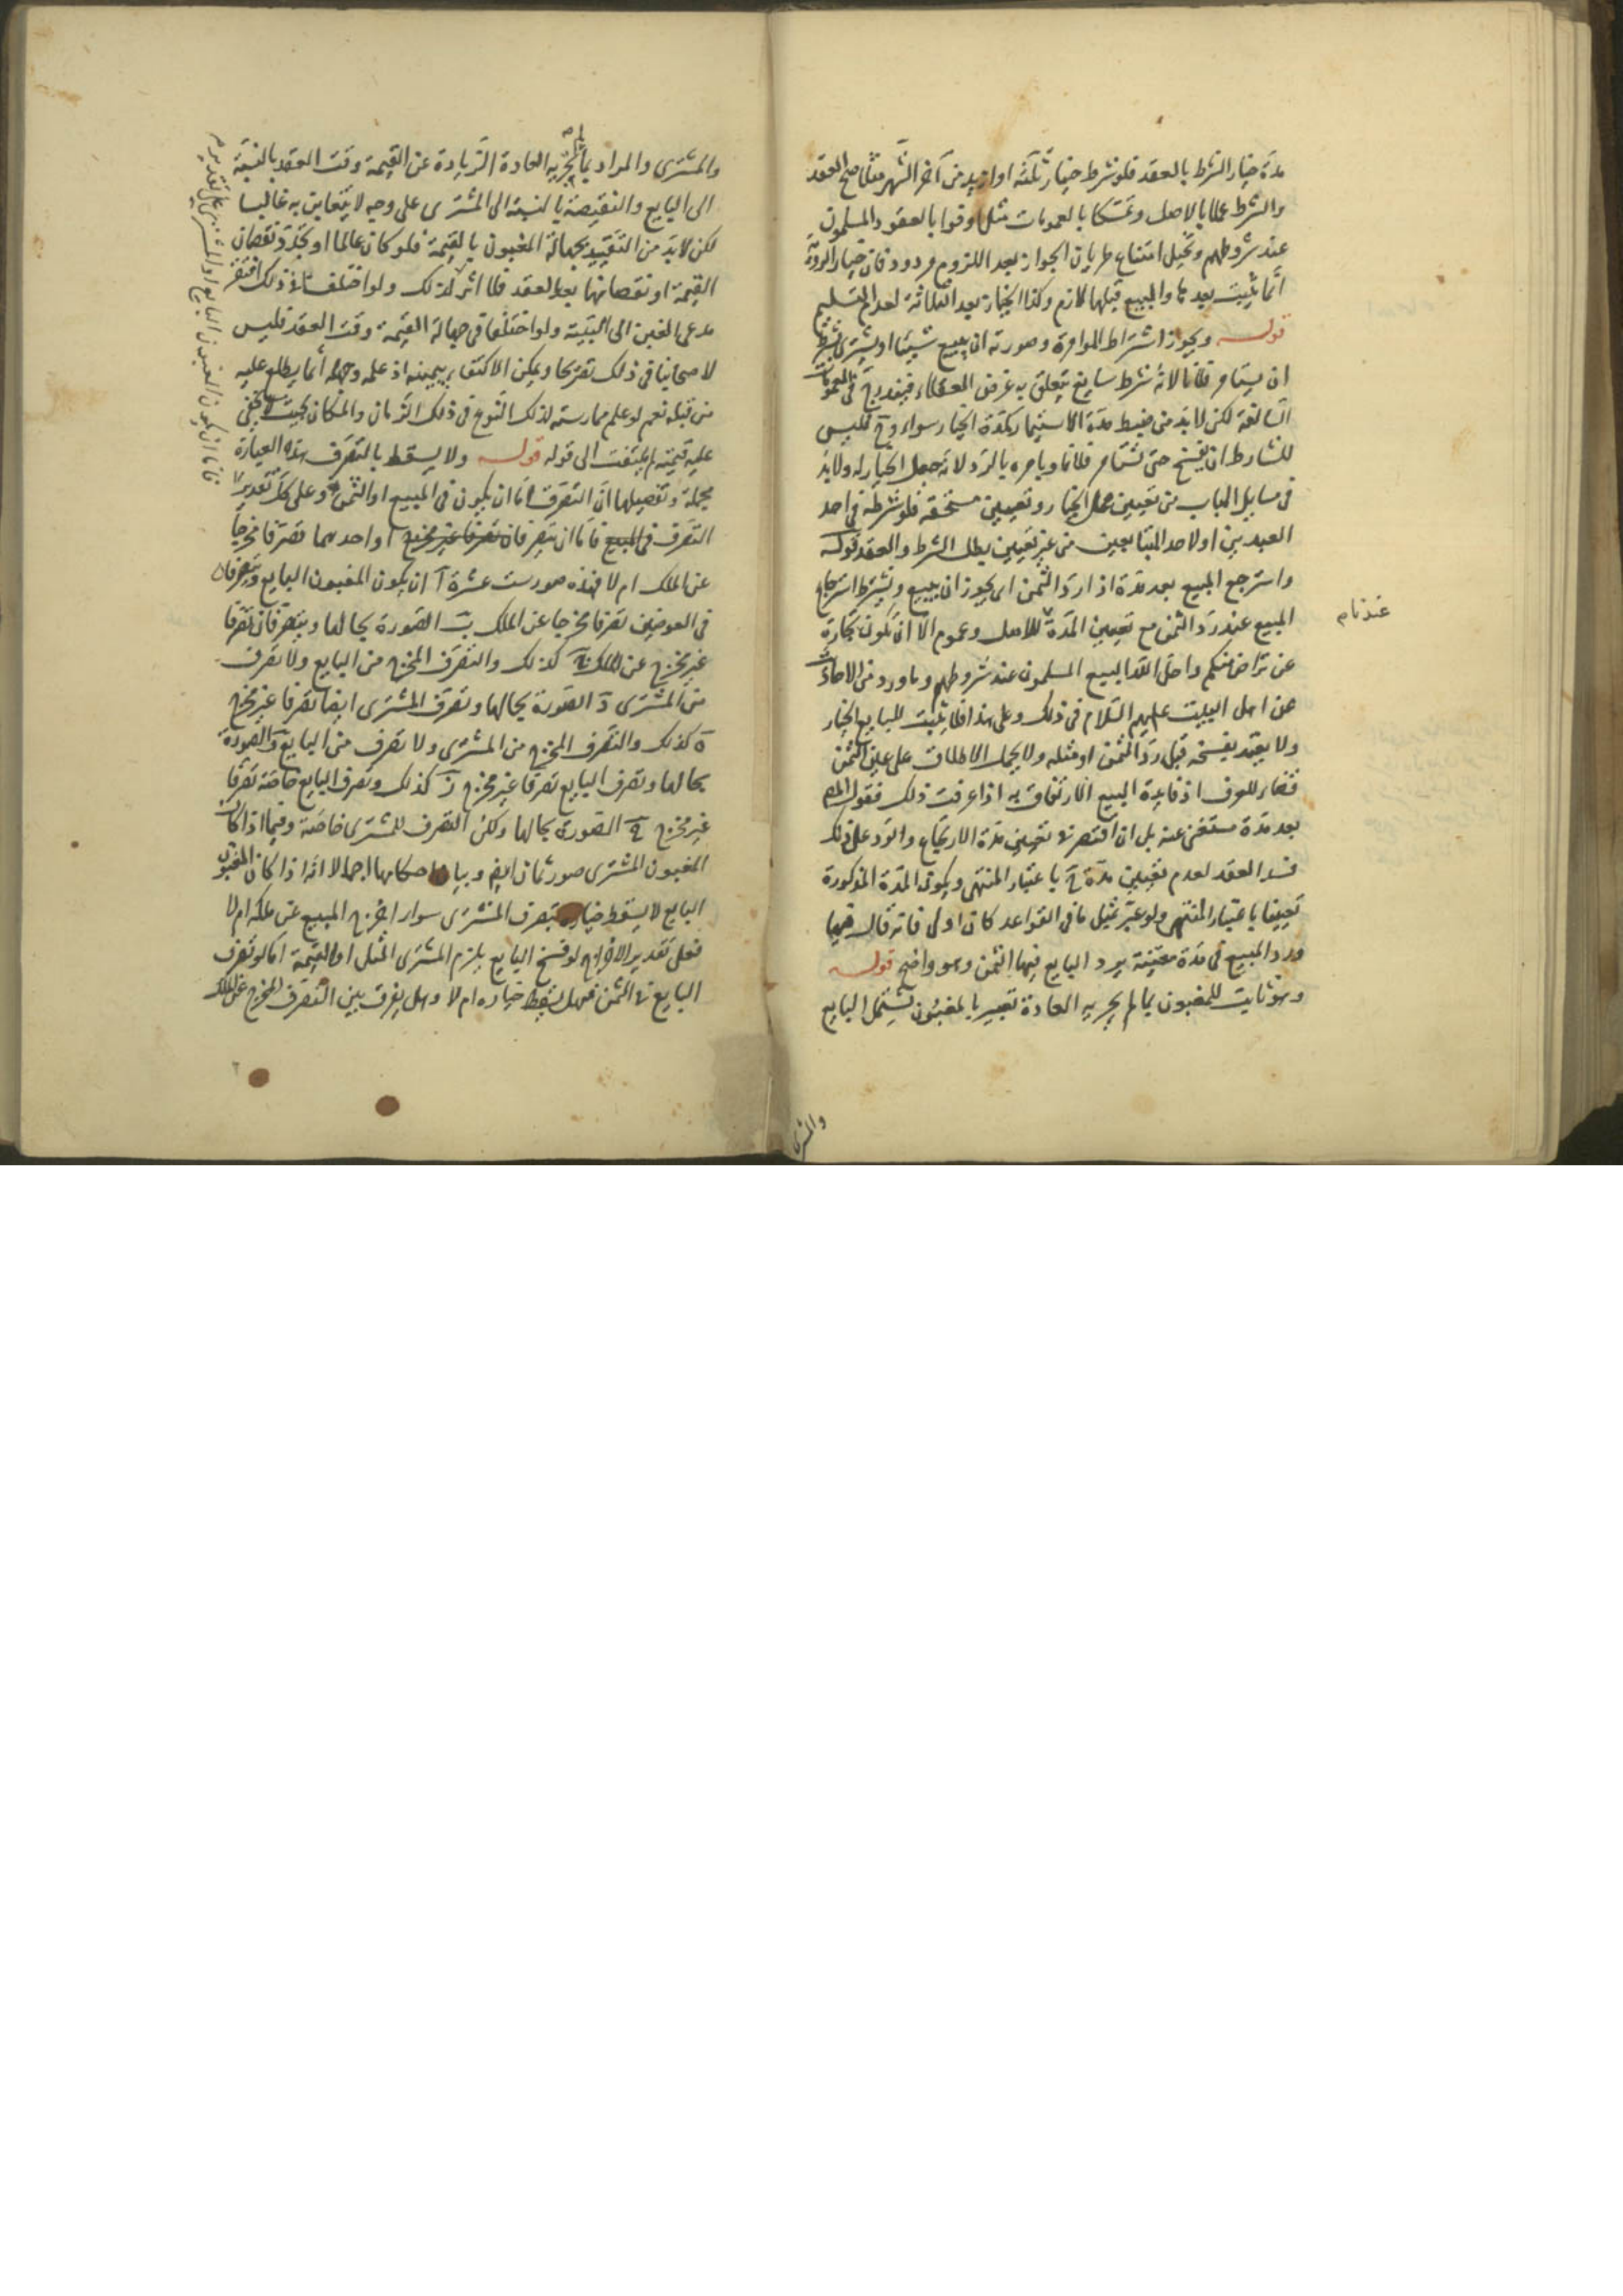 مدة خيار الشرط بالعقد فلو شرط خيار ثلثة او ازيد من آخر الشهر مثلا صح العقد
والشرط عملا بالاصل وتمسكا بالعمومات مثل اوفوا بالعقود والمسلمون
عند شروطهم وتخيل امتناع طريان الجواز بعد اللزوم مردود فان خيار الروية
انما يثبت بعدها والمبيع قبلها لازم وكذا الخيار بعد الثلاثة لعدم التسليم
قوله ويجوز اشتراط المؤامرة وصورته ان يبيع شيئا او يشترى بشرط
ان يستامر فلانا لانه شرط سايغ يتعلق به غرض العقلاء فيندرج فى العمومات
السالفة لكن لابد من ضبط مدة الاستيمار كمدة الخيار سواء وح فليس
للشارط ان يفسخ حتى يستامر فلانا ويامره بالرد لانه جعل الخيار له ولابد
فى مسايل الباب من تعيين محل الخيار وتعيين مستحقه فلو شرطه فى احد
العبدين او لاحد المتبايعين من غير تعيين بطل الشرط والعقد قوله
واسترجع المبيع بعد مدة اذا رد الثمن اى يجوز ان يبيع ويشترط استرجاع
المبيع عند رد الثمن مع تعيين المدة للاصل وعموم الا ان تكون تجارة
عن تراض منكم واحل الله البيع المسلمون عند شروطهم وماورد من الاحاديث
عن اهل البيت عليهم السلام فى ذلك وعلى هذا فلا يثبت للبايع الخيار
ولا يعتد بفسخه قبل رد الثمن او مثله ولا يحمل الاطلاق على عين الثمن
قضاء للعرف اذ فايدة البيع الارتفاق به اذا عرفت ذلك فقول المصـ
بعد مدة مستغنى عنه بل ان اقتصر فى تعيين مدة الارتجاع والرد على ذلك
فسد العقد لعدم تعيين مدة ح باعتبار المنتهى ويكون المدة المذكورة
تعيينا باعتبار المنتهى ولو عبر بمثل ما فى القواعد كان اولى فانه قال فيها
ورد المبيع فى مدة معينة يرد البايع فيها الثمن وهو واضح قوله
وهو ثابت للمغبون بما لم يجر به العادة تعبير بالمغبون يشتمل البايع
والمشترى
والمشترى والمراد بما لم يجر به العادة الزيادة عن القيمة وقت العقد بالنسبة
الى البايع والنقيصة بالنسبة الى المشترى على وجه لا يتغابن به غالبا
لكن لابد من التقييد بجهالة المغبون بالقيمة فلو كان عالما او تجدد نقصان
القيمة او نقصانها بعد العقد فلا اثر لذلك ولو اختلفا فى ذلك افتقر
مدعى الغبن الى البينة ولو اختلفا فى جهالة القيمة وقت العقد فليس
لاصحابنا فى ذلك تصريحا ويمكن الاكتفاء بيمينه اذ علمه وجهله انما يطلع عليه
من قبله نعم لو علم ممارسته لذلك النوع فى ذلك الزمان والمكان بحيث لا يخفى
عليه قيمته لم يلتفت الى قوله قوله ولا يسقط بالتصرف هذه العبارة
مجملة وتفصيلها ان التصرف اما ان يكون فى المبيع او الثمن وعلى كل تقدير
التصرف فى المبيع فاما ان يتصرفان تصرفا غير مخرج او احدهما تصرفا مخرجا
عن الملك ام لا فهذه صور ست عشرة آ ان يكون المغبون البايع ويتصرفان
فى العوضين تصرفا مخرجا عن الملك ب الصورة بحالها ويتصرفان تصرفا
غير مخرج عن الملك ج كذلك والتصرف المخرج من البايع ولا تصرف
من المشترى د الصورة بحالها وتصرف المشترى ايضا تصرفا غير مخرج
ه كذلك والتصرف المخرج من المشترى ولا تصرف من البايع و الصورة
بحالها وتصرف البايع تصرفا غير مخرج ز كذلك وتصرف البايع خاصة تصرفا
غير مخرج ح الصورة بحالها ولكن التصرف للمشترى خاصة وفيما اذا كان
المغبون المشترى صور ثمان ايضا وبيان احكامها اجمالا انه اذا كان المغبون
البايع لا يسقط خياره بتصرف المشترى سواء اخرج المبيع عن ملكه ام لا
فعلى تقدير الاخراج لو فسخ البايع يلزم المشترى المثل او القيمة اما لو تصرف
البايع فى الثمن فهل يسقط خياره ام لا وهل يفرق بين التصرف المخرج عن الملك
فاما ان يكون المغبون البايع او المشترى على كل تقدير